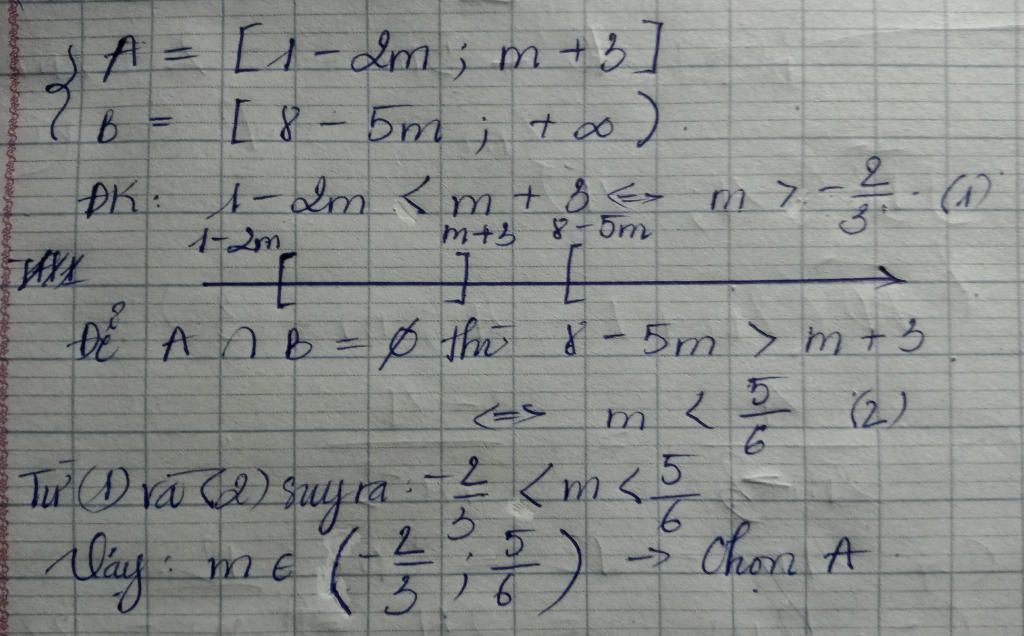 A = [1 - 2m ; m + 3]
B = [8 - 5m ; + ∞).
ĐK: 1 - 2m < m + 3 <=> m > -2/3. (1)
1-2m m+3 8-5m
[ ] [
Để A ∩ B = ∅ thì 8 - 5m > m + 3
<=> m < 5/6 (2)
Từ (1) và (2) suy ra: -2/3 < m < 5/6
Vậy: m ∈ (-2/3 ; 5/6) → Chọn A